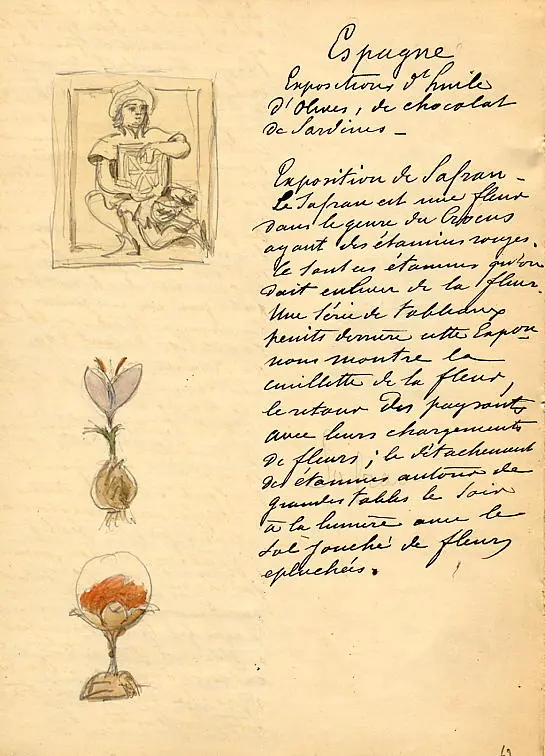 Espagne
Expositions d'huile
d'Olives, de chocolat
de Sardines –
Exposition de Safran –
Le Safran est une fleur
dans le genre du Crocus
ayant des étamines rouges.
Ce sont ces étamines qu'on
doit enlever de la fleur.
Une série de tableaux
peints derrière cette Expon
nous montre la
cueillette de la fleur,
le retour des paysans
avec leurs chargements
de fleurs ; le détachement
des étamines autour de
grandes tables le soir
à la lumière avec le
sol jonché de fleurs
épluchées.